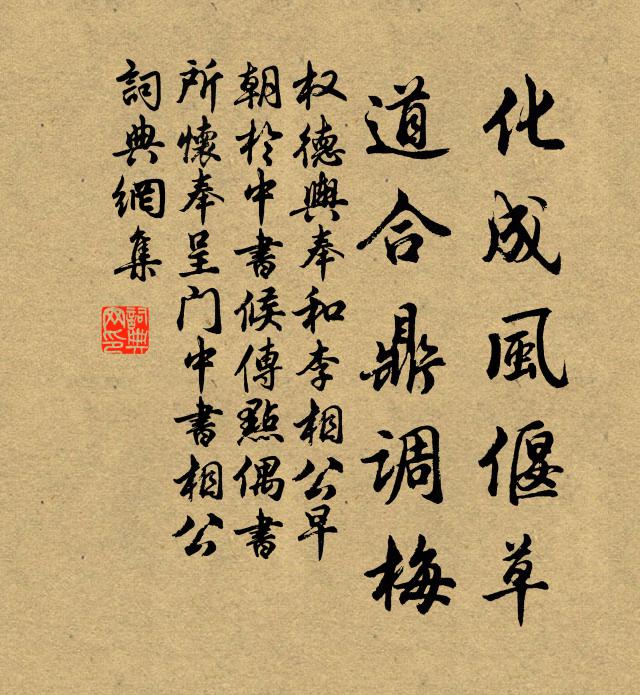 化成風偃草
道合鼎调梅
权德輿奉和李相公早
朝於中書候傳點偶書
所懷奉呈门中書相公
詞典網集
詞典网印